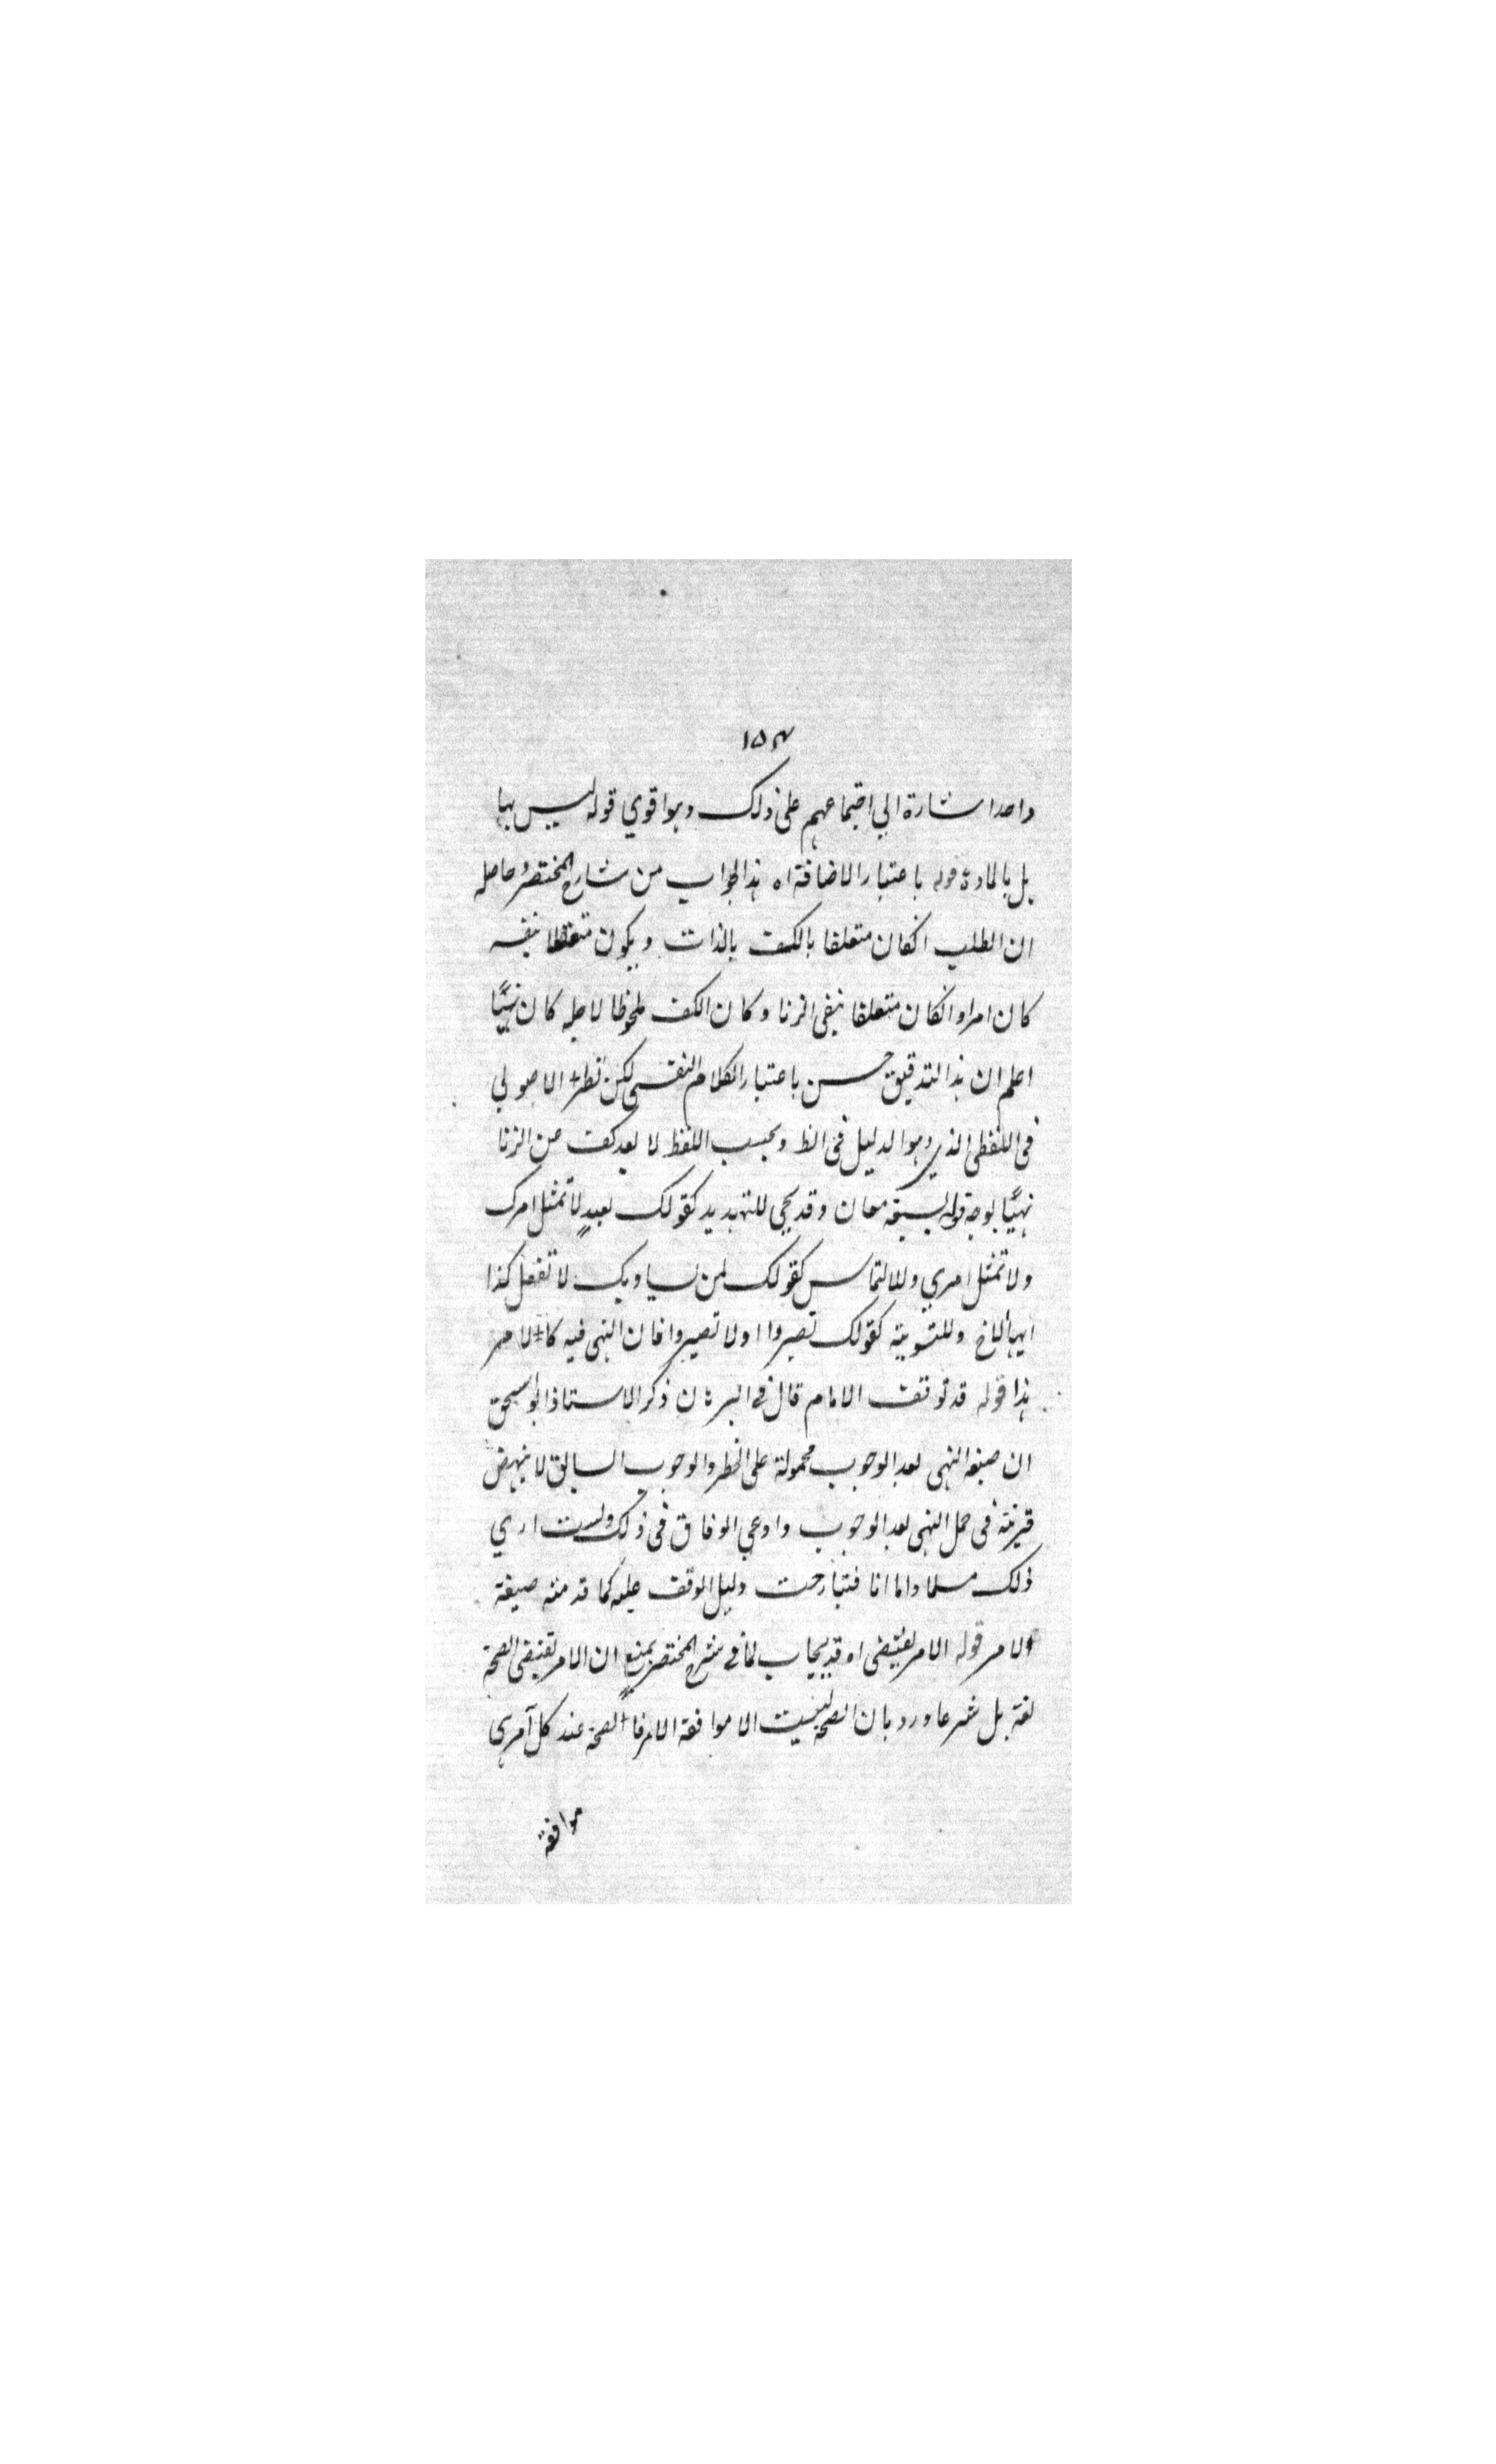 ١٥٣
واحدا اشارة الي اجتماعهم على ذلك وهو اقوي قوله ليس بها
بل بالمادة قوله باعتبار الاضافة اه هذا الجواب من شارح المختصر وحاصله
ان الطلب انكان متعلقا بالكف بالذات ويكون متعلقا بنفسه
كان امرا وانكان متعلقا بنفى الزنا وكان الكف ملحوظا لاجله كان نهيًا
اعلم ان هذا التدقيق حسن باعتبار الكلام النفسى لكن نظر الاصولي
فى اللفظى الذي هو الدليل فى الظ وبحسب اللفظ لا يعد كف عن الزنا
نهيًا بوجه قوله لسبعة معان وقد يجي للتهديد كقولك لعبدٍ لا تمثل امرك
ولا تمثل امري وللالتماس كقولك لمن يساويك لا تفعل كذا
ايها الاخ وللتسوية كقولك تصبروا اولا تصبروا فان النهى فيه كالامر
هذا قوله قد توقف الامام قال فى البرهان ذكر الاستاذ ابو اسحق
ان صيغة النهى بعد الوجوب محمولة على الحظر والوجوب السابق لا ينهض
قرينة فى حمل النهى بعد الوجوب وادعي الوفاق فى ذلك ولست اري
ذلك مسلما واما انا فتبارحت دليل الوقف عليه كما قدمته صيغة
الامر قوله الامر يقتضى اه قد يجاب لما فى شرح المختصر بمنع ان الامر يقتضى الصحة
لغة بل شرعا ورد بان الصحة ليست الا موافقة الامر فالصحة عند كل آمر هى
موافقة